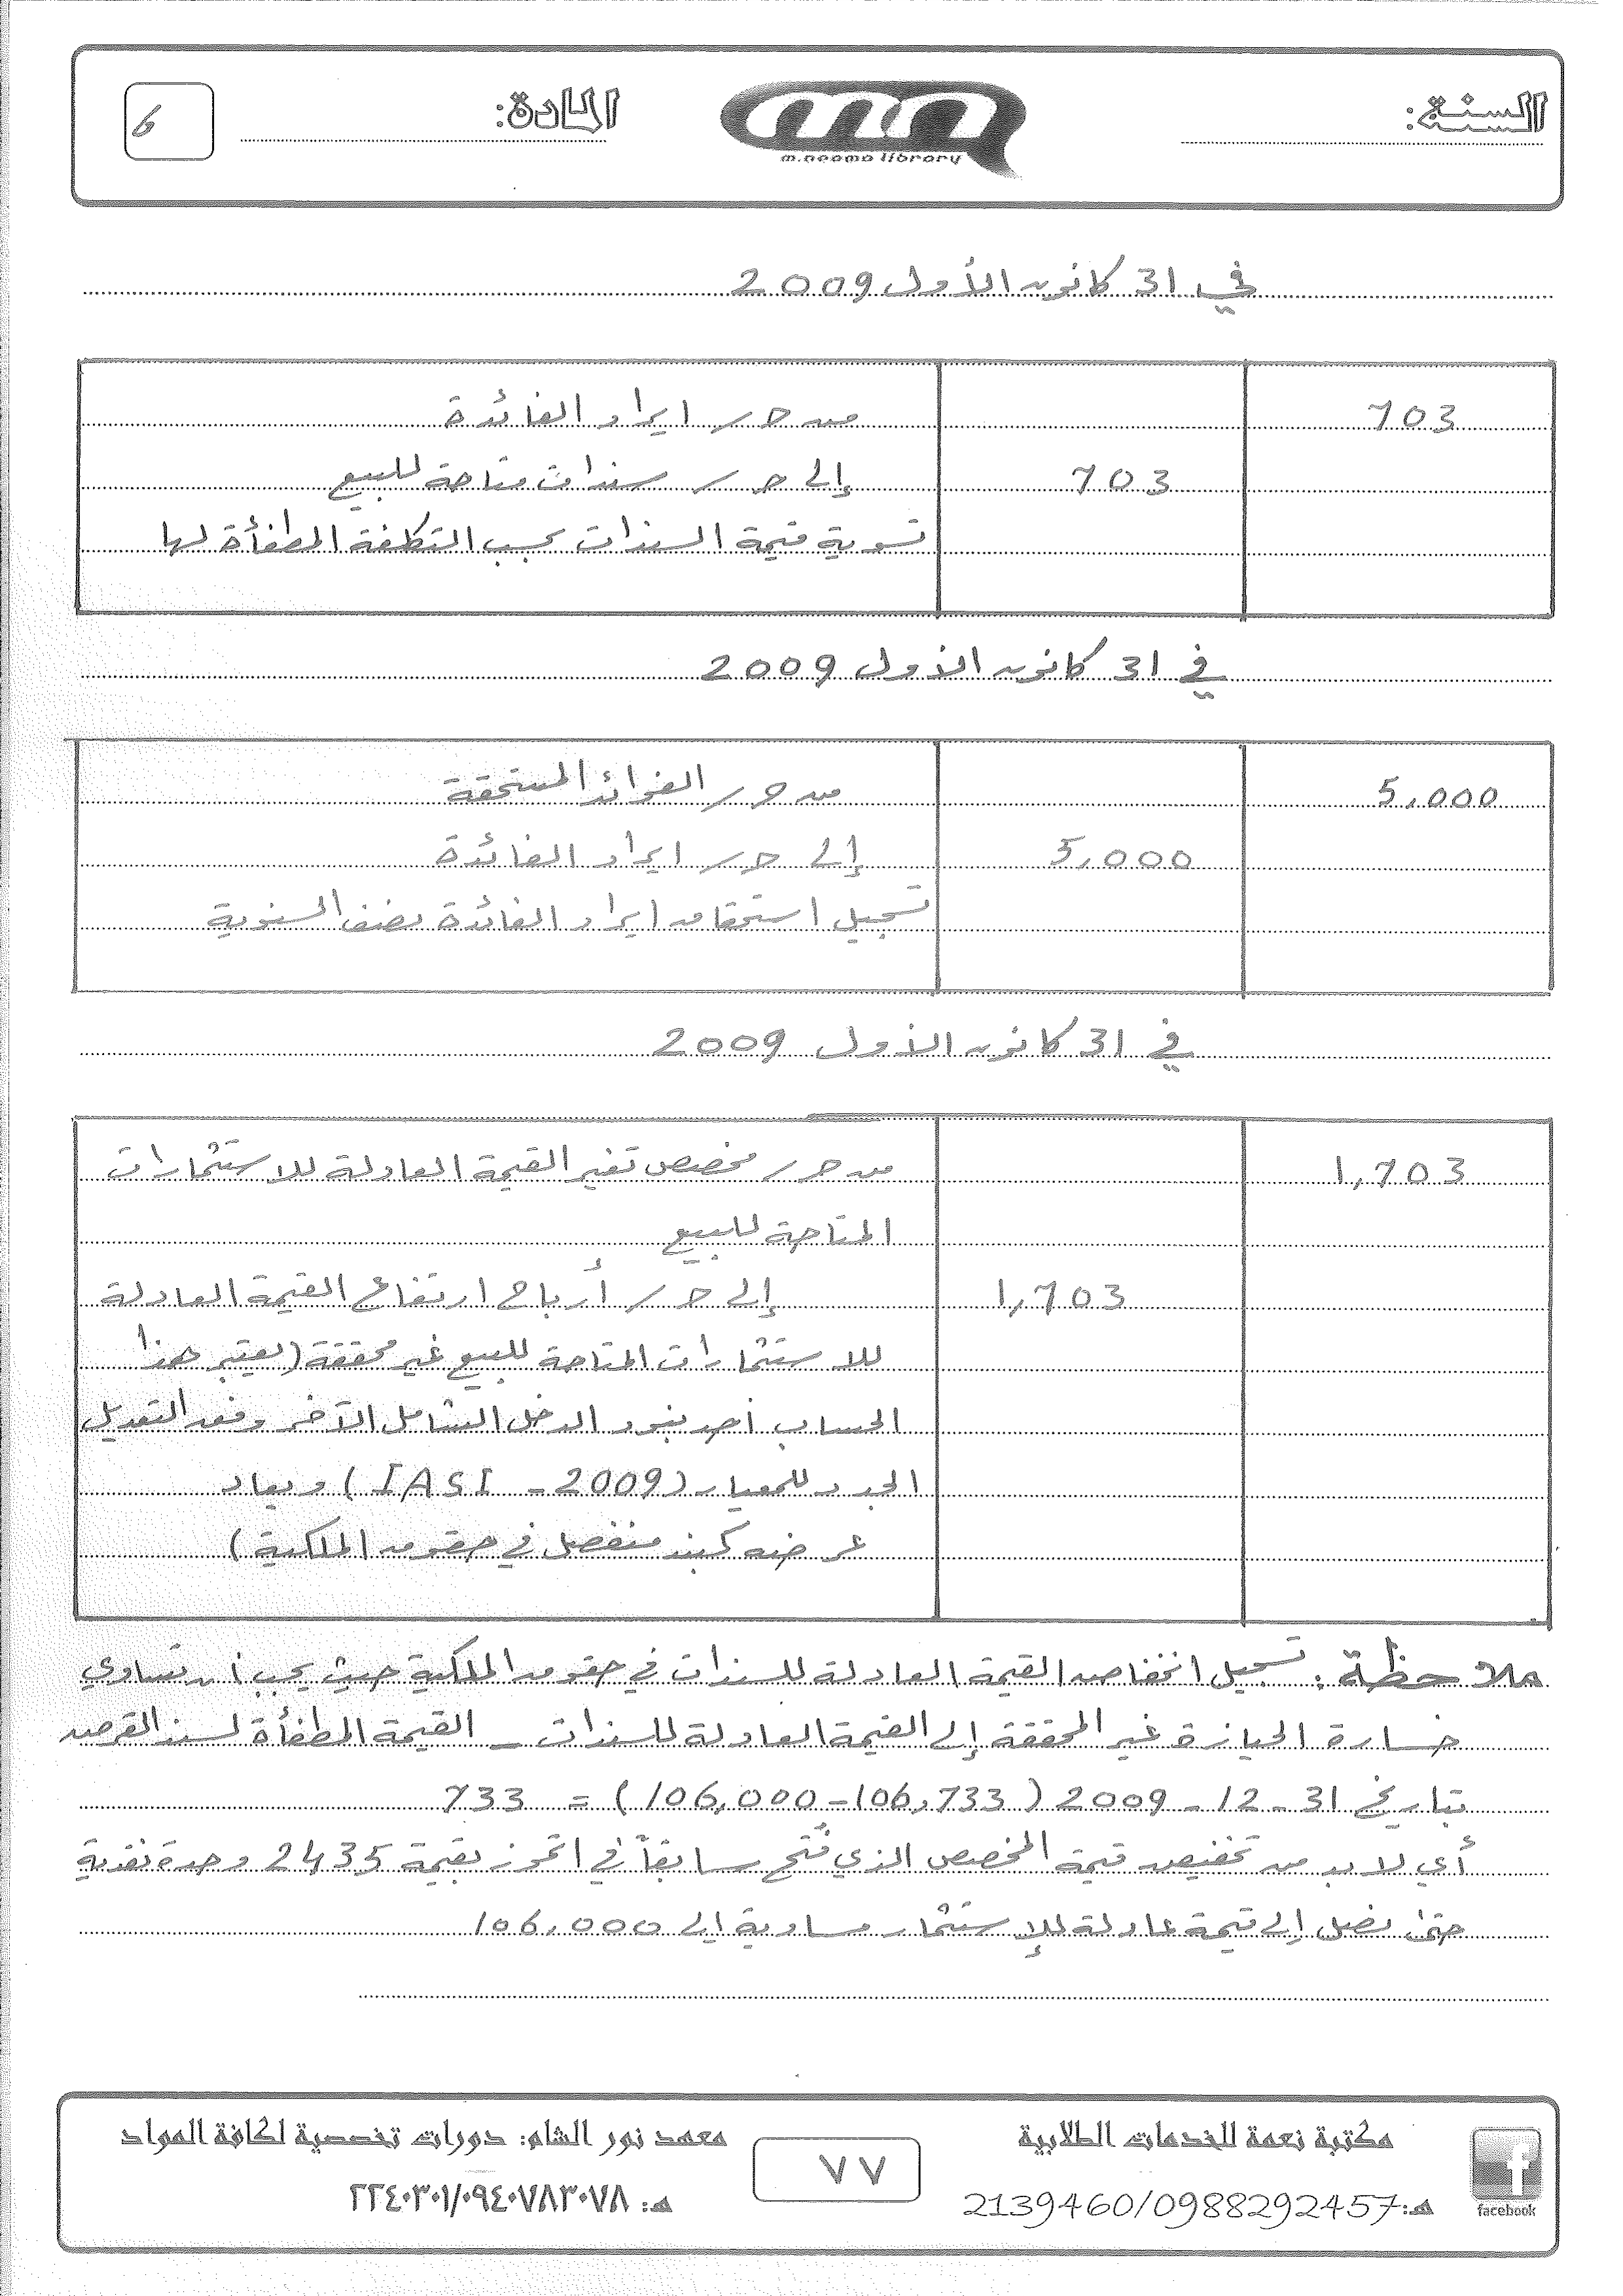 السنة:
المادة:
6
m.neama library
في 31 كانون الأول 2009
703 من ح / ايراد الفائدة
703 إلى ح / سندات متاحة للبيع
تسوية قيمة السندات بحسب التكلفة المطفأة لها
في 31 كانون الأول 2009
5,000 من ح / الفوائد المستحقة
5,000 إلى ح / ايراد الفائدة
تسجيل استحقاق ايراد الفائدة نصف السنوية
في 31 كانون الأول 2009
1,703 من ح / مخصص تغير القيمة العادلة للاستثمارات
المتاحة للبيع
1,703 إلى ح / أرباح ارتفاع القيمة العادلة
للاستثمارات المتاحة للبيع غير محققة (يعتبر هذا
الحساب أحد بنود الدخل الشامل الآخر وفق التعديل
الجديد للمعيار (IAS1 - 2009) ويعاد
عرضه كبند منفصل في حقوق الملكية)
ملاحظة: تسجيل انخفاض القيمة العادلة للسندات في حقوق الملكية حيث يجب أن تساوي
خسارة الحيازة غير المحققة إلى القيمة العادلة للسندات - القيمة المطفأة لسند القرض
بتاريخ 31 - 12 - 2009 (106,733 - 106,000) = 733
أي لا بد من تخفيض قيمة المخصص الذي فُتح سابقاً في 1 تموز بقيمة 2435 وحدة نقدية
حتى نصل إلى قيمة عادلة للإستثمار مساوية إلى 106,000
مكتبة نعمة للخدمات الطلابية
هـ: 2139460/0988292457
facebook
٧٧
معهد نور الشام: دورات تخصصية لكافة المواد
هـ: ٢٢٤٠٣٠١/٠٩٤٠٧٨٣٠٧٨